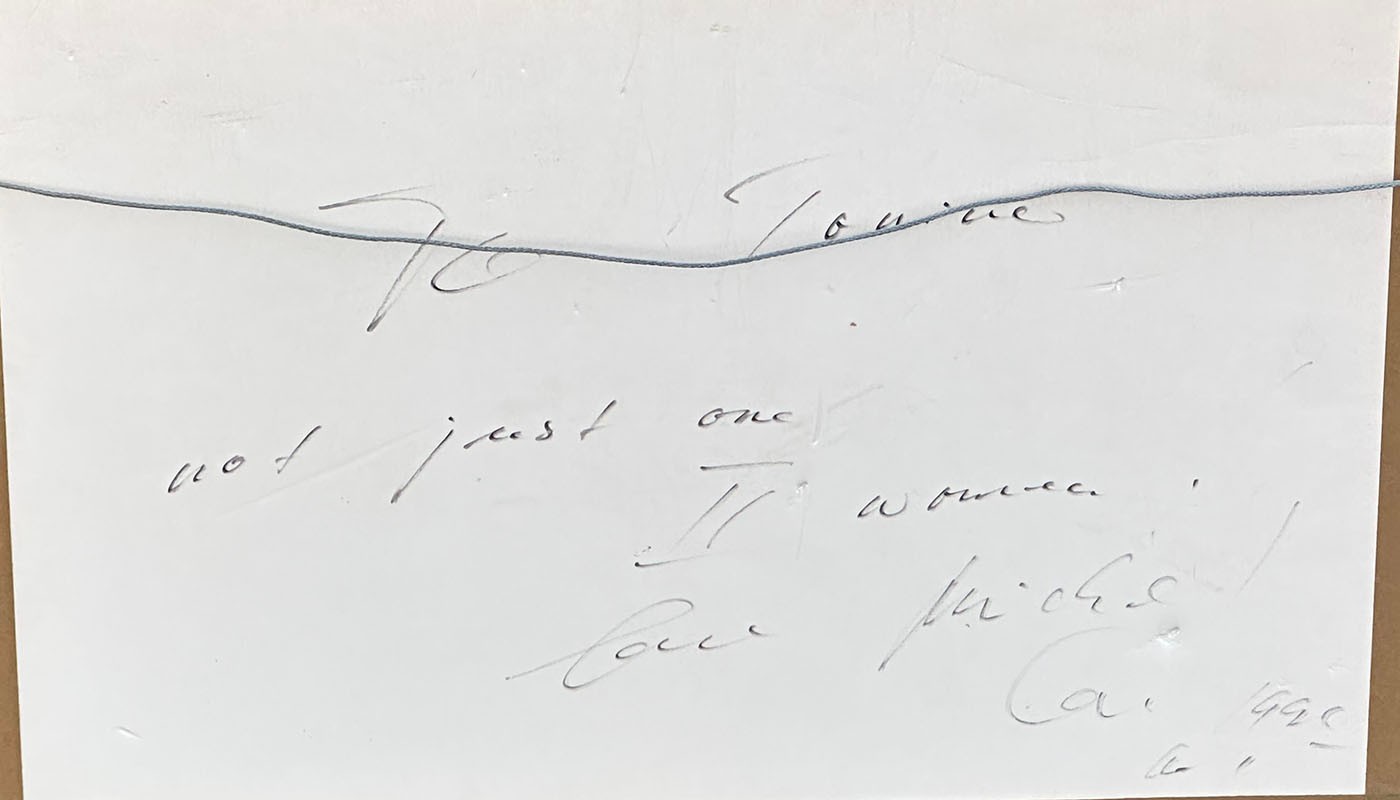 To Tonine
not just one
II women
Love Michel
Ca. 199